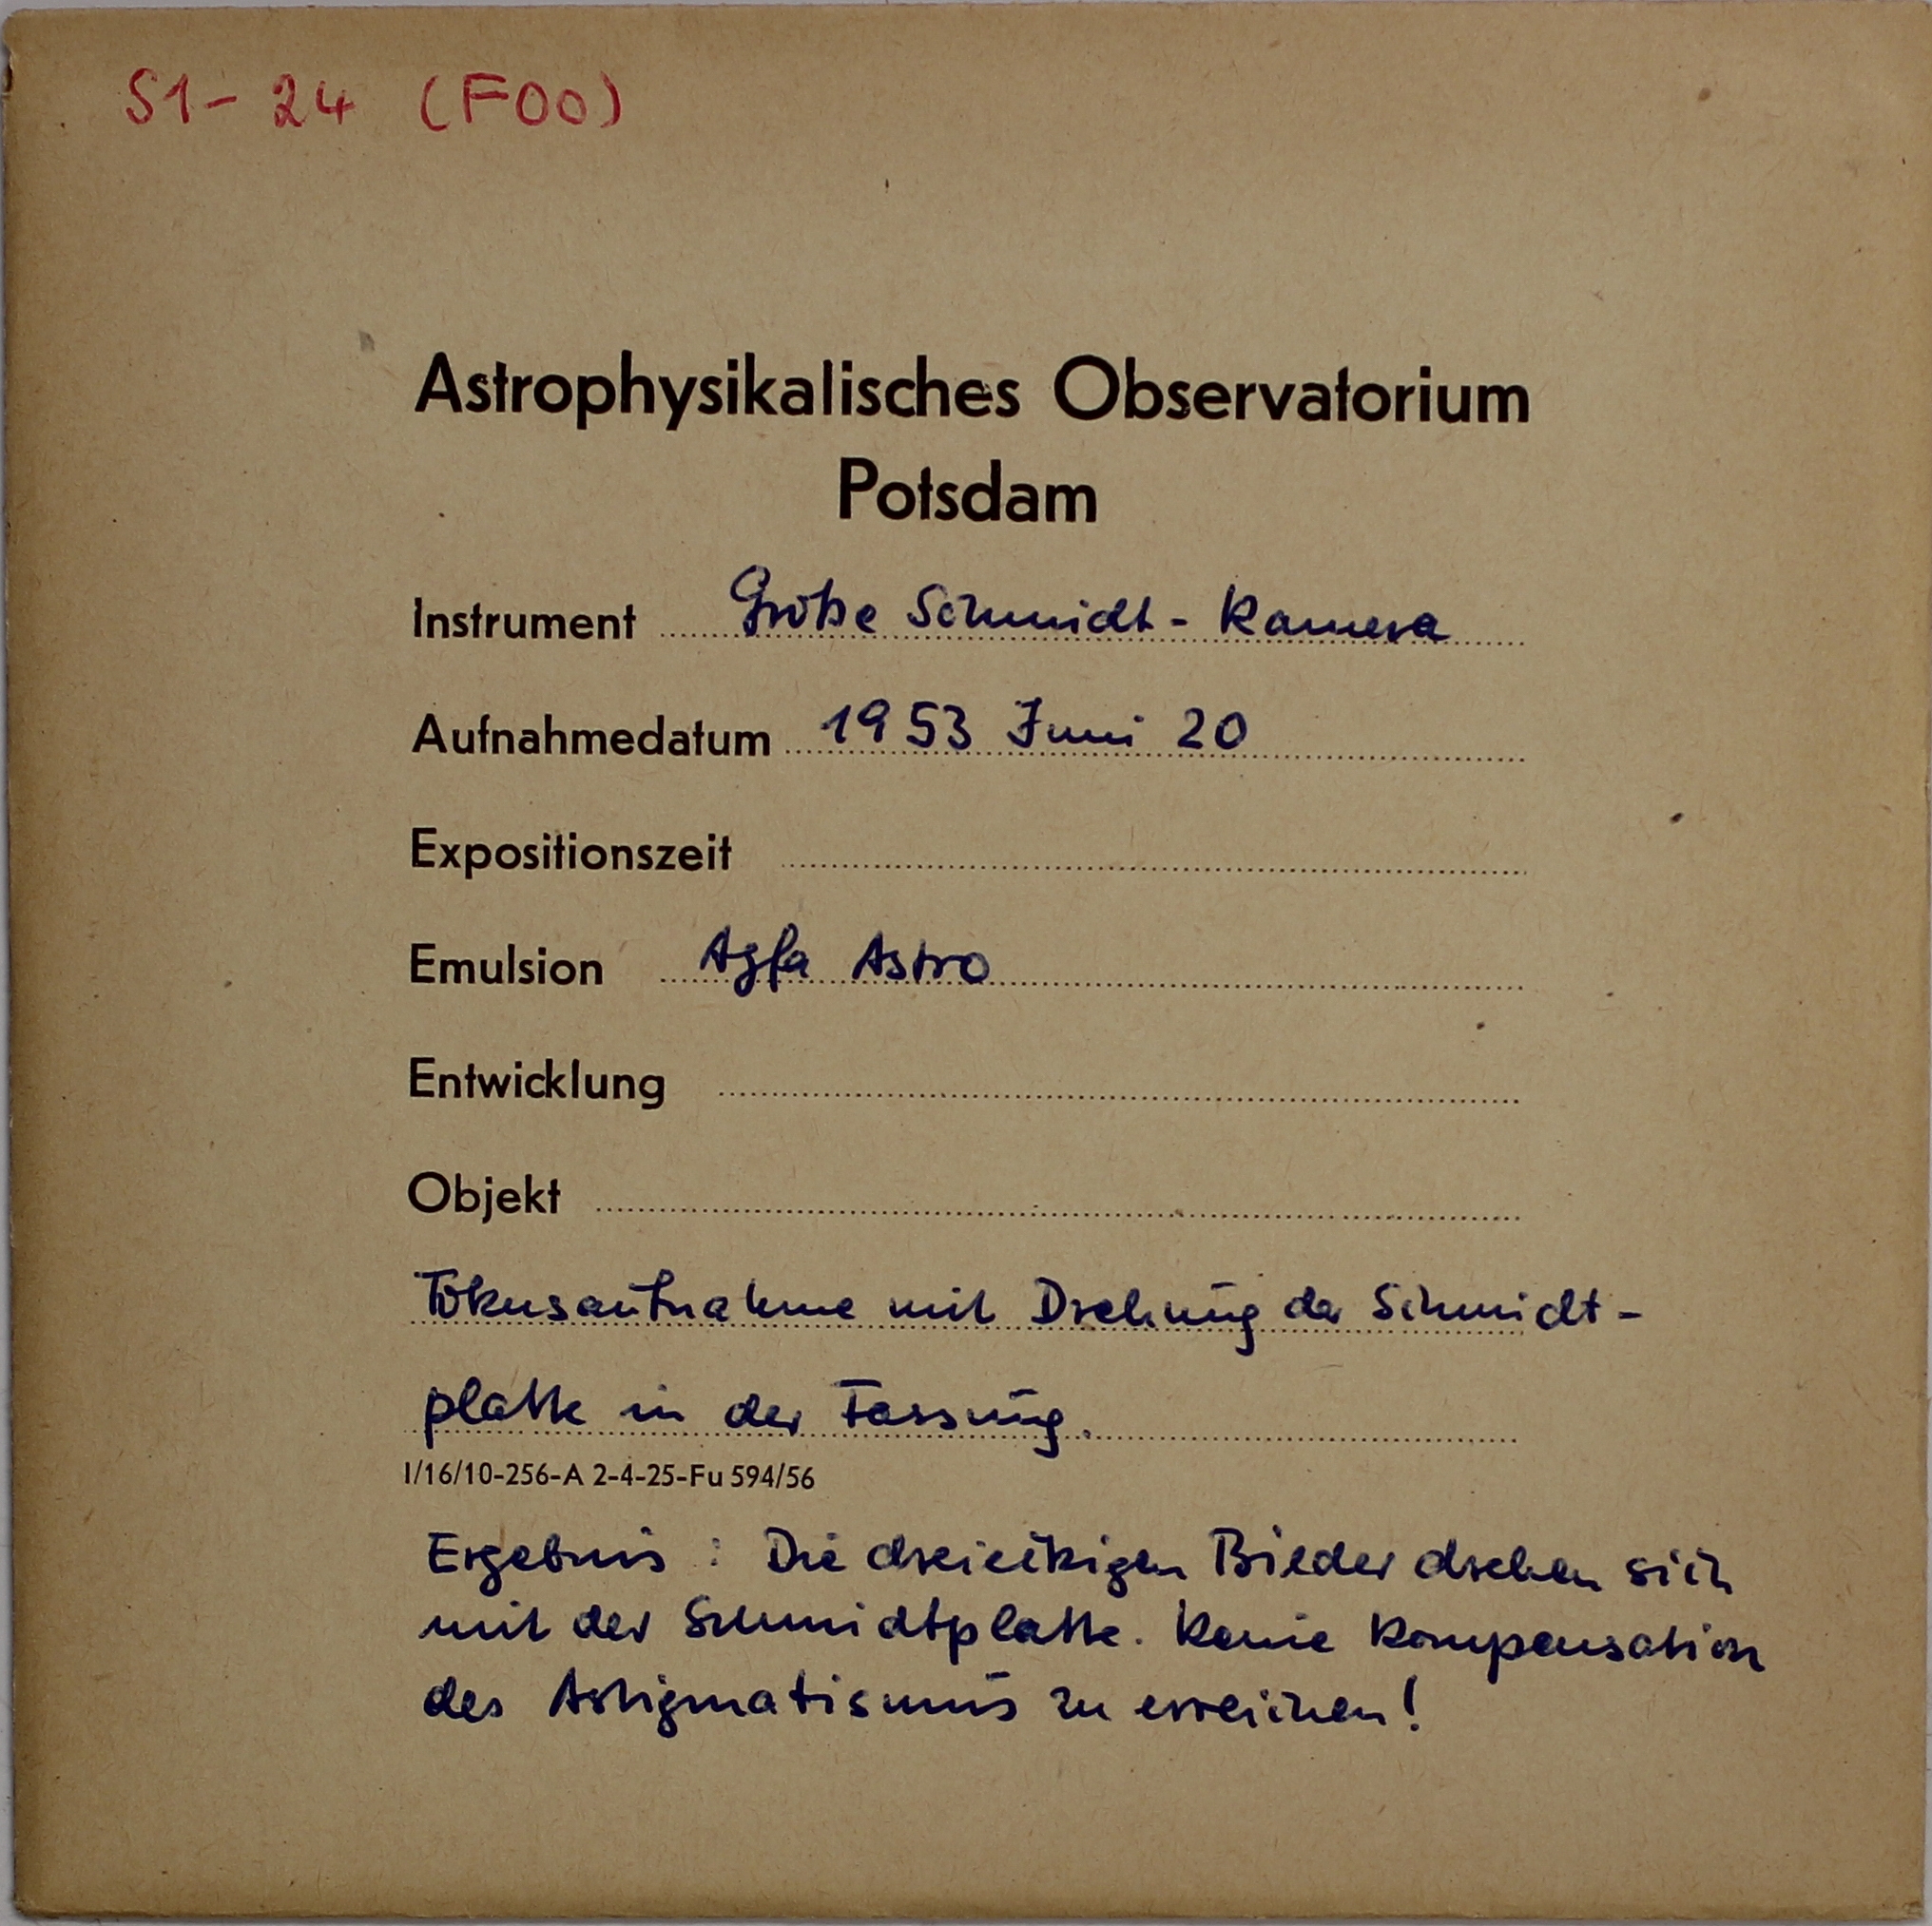 S1- 24 (F00)
Astrophysikalisches Observatorium
Potsdam
Instrument Große Schmidt-Kamera
Aufnahmedatum 1953 Juni 20
Expositionszeit
Emulsion Agfa Astro
Entwicklung
Objekt
Fokusaufnahme mit Drehung der Schmidt-
platte in der Fassung.
I/16/10-256-A 2-4-25-Fu 594/56
Ergebnis : Die dreieckigen Bilder drehen sich
mit der Schmidtplatte. Keine Kompensation
des Astigmatismus zu erreichen!